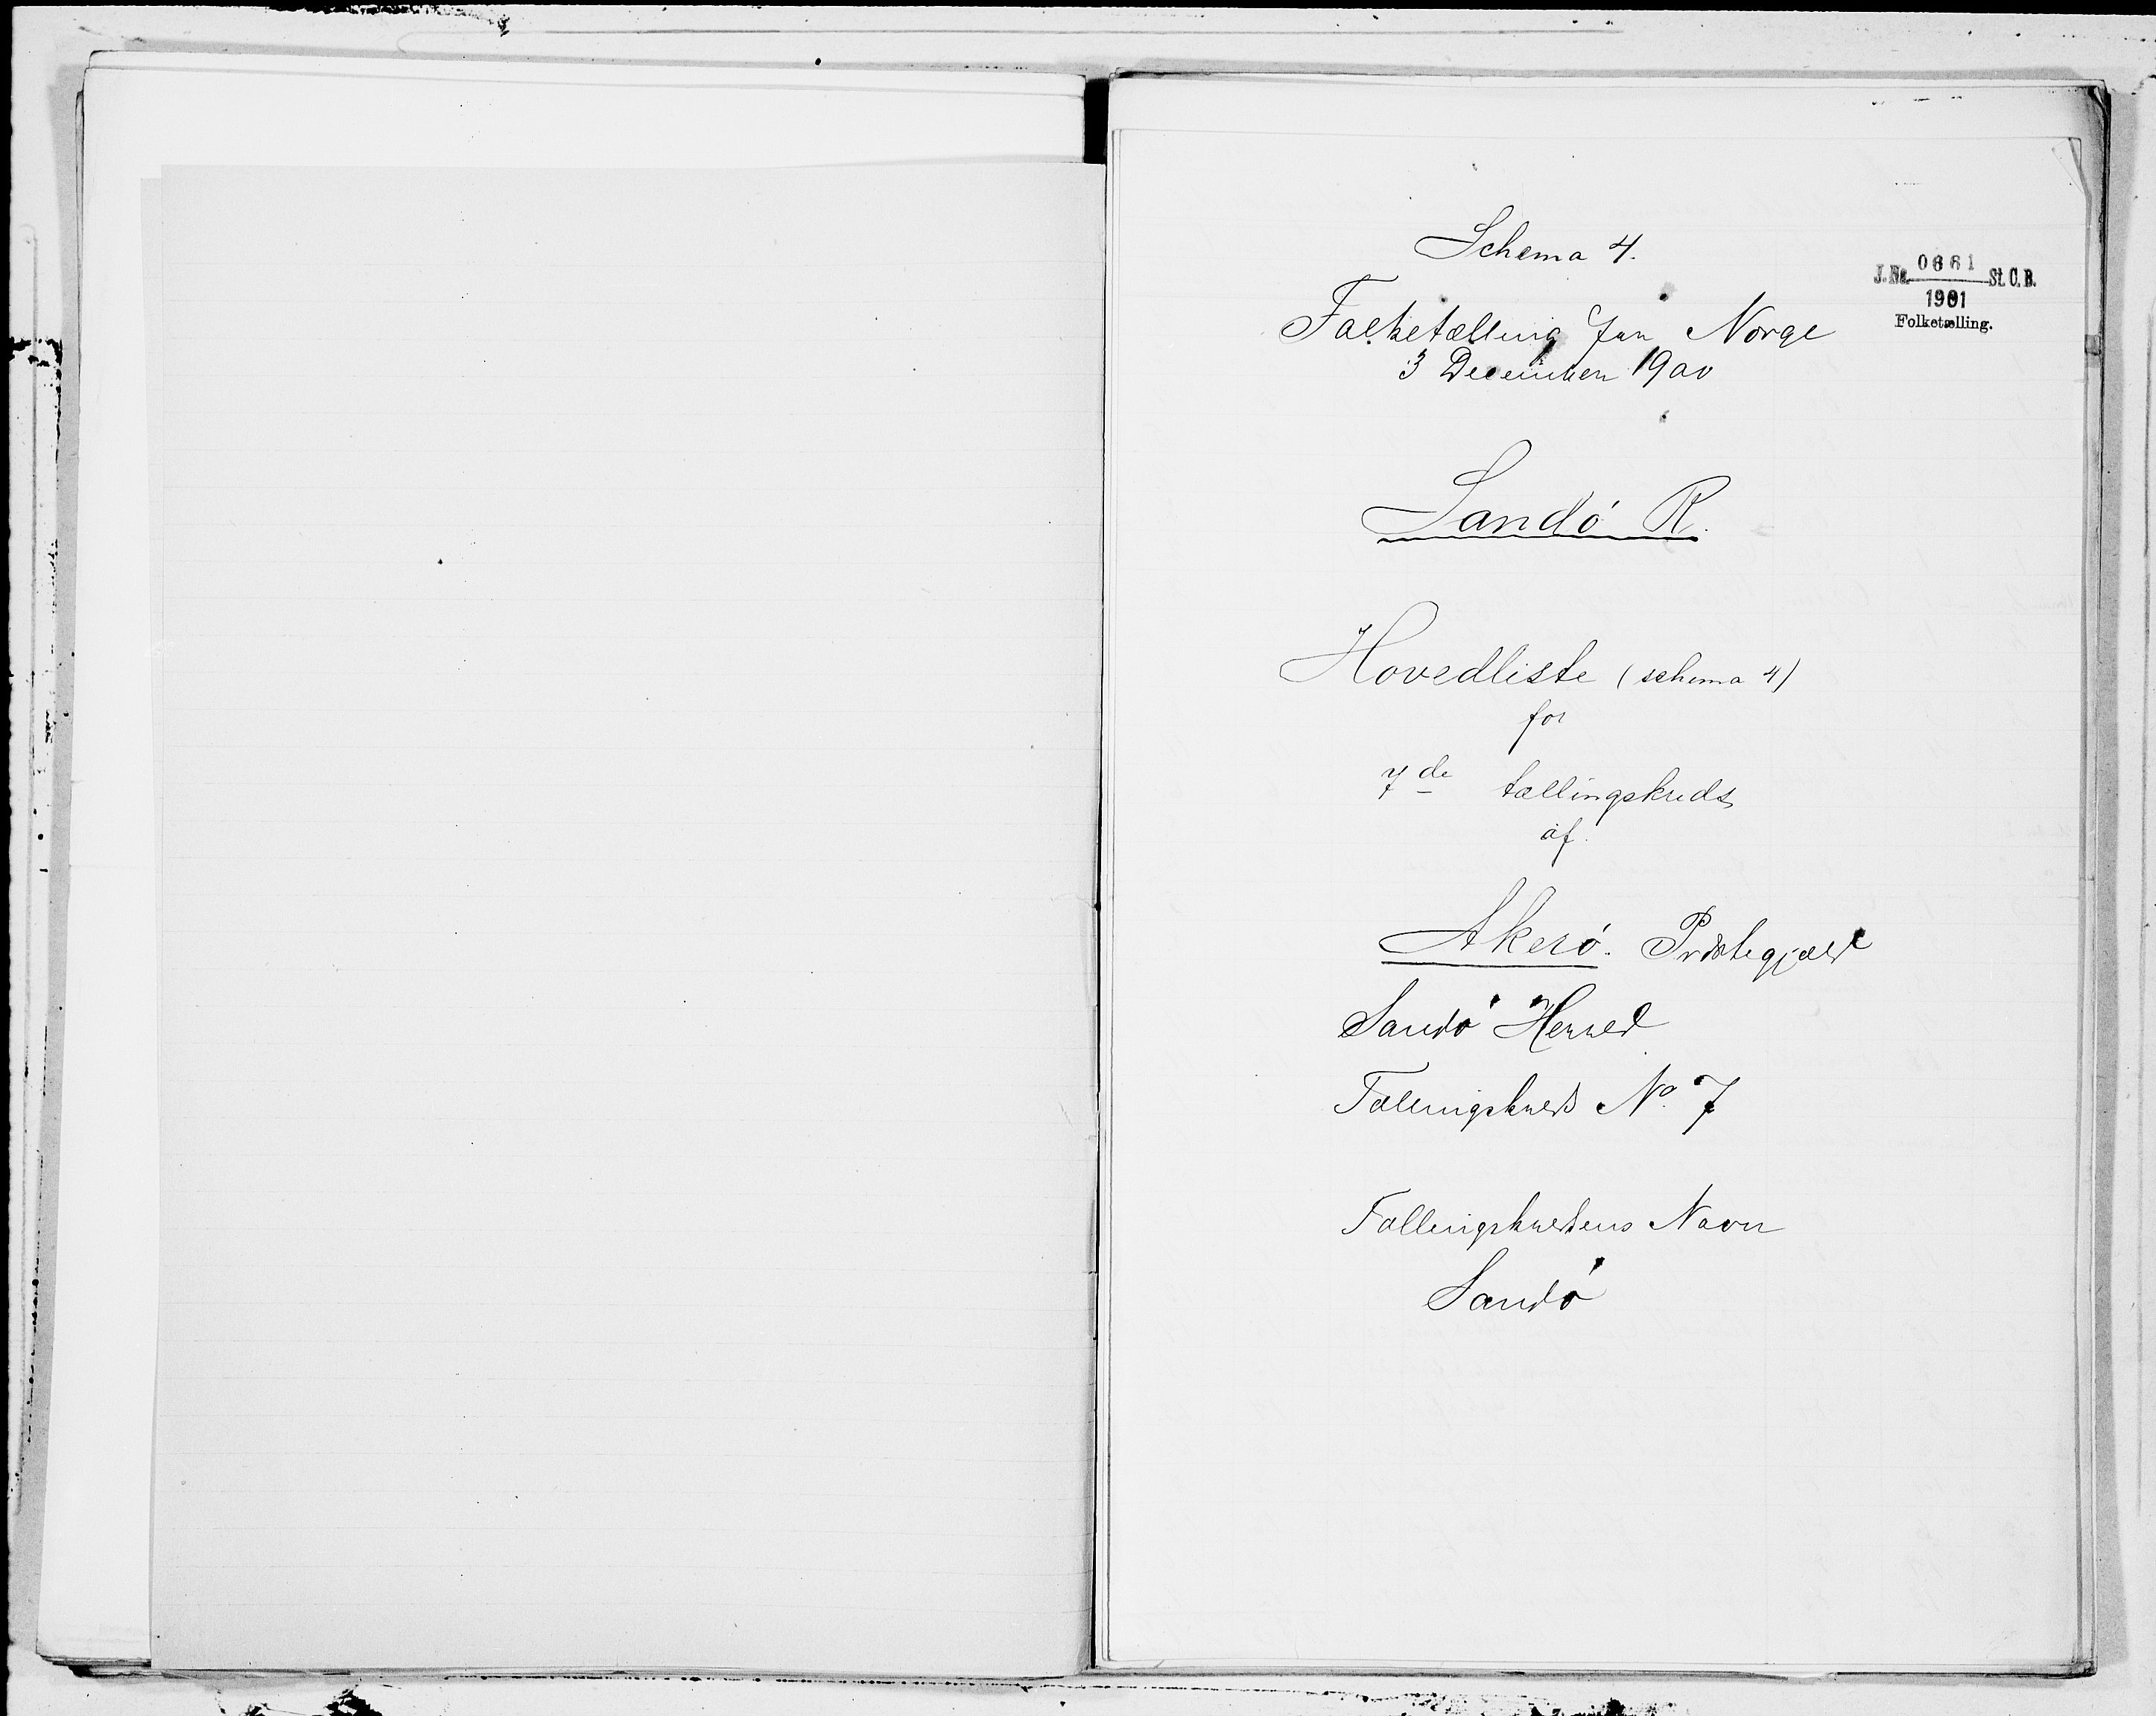 Schema 4.
J. No. 0661 St. C. B.
1901
Folketælling.
Folketælling for Norge
3 December 1900
Sandö R.
Hovedliste (schema 4)
for
7de tællingskreds
af
Akerö. Præstegjæld
Sandö Herred
Tællingskreds No. 7
Tællingskredsens Navn
Sandö